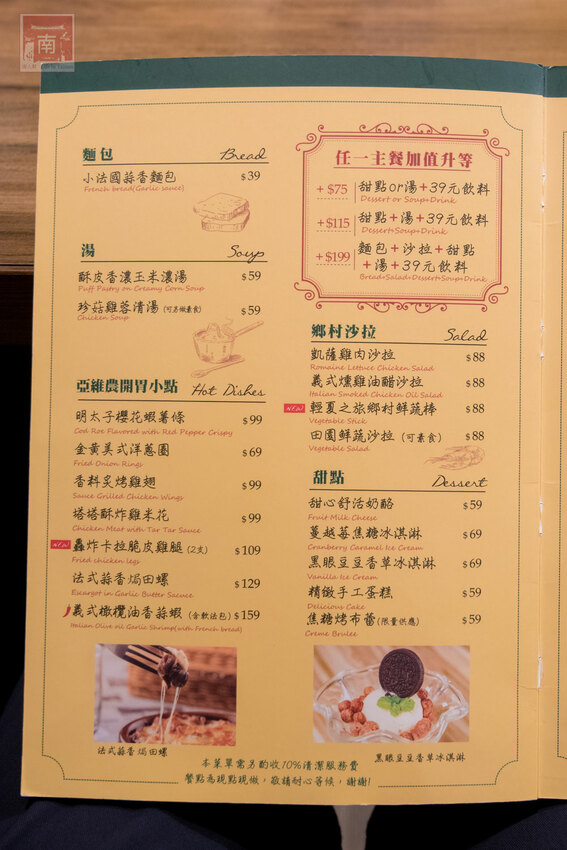 南
麵包 Bread
小法國蒜香麵包 $39
French bread(Garlic sauce)
湯 Soup
酥皮香濃玉米濃湯 $59
Puff Pastry on Creamy Corn Soup
珍菇雞蓉清湯 (可另做素食) $59
Chicken Soup
亞維農開胃小點 Hot Dishes
明太子櫻花蝦薯條 $99
Cod Roe Flavored with Red Pepper Crispy
金黃美式洋蔥圈 $69
Fried Onion Rings
香料炙烤雞翅 $99
Sauce Grilled Chicken Wings
塔塔酥炸雞米花 $99
Chicken Meat with Tar Tar Sauce
NEW 轟炸卡拉脆皮雞腿 (2支) $109
Fried chicken legs
法式蒜香焗田螺 $129
Escargot in Garlic Butter Saucce
義式橄欖油香蒜蝦 (含軟法包) $159
Italian Olive oil Garlic Shrimp(with French bread)
法式蒜香焗田螺
任一主餐加值升等
+$75 甜點or湯+39元飲料
Dessert or Soup+Drink
+$115 甜點+湯+39元飲料
Dessert+Soup+Drink
+$199 麵包+沙拉+甜點
+湯+39元飲料
Bread+Salad+Dessert+Soup+Drink
鄉村沙拉 Salad
凱薩雞肉沙拉 $88
Romaine Lettuce Chicken Salad
義式燻雞油醋沙拉 $88
Italian Smoked Chicken Oil Salad
NEW 輕夏之旅鄉村鮮蔬棒 $88
Vegetable Stick
田園鮮蔬沙拉 (可素食) $88
Vegetable Salad
甜點 Dessert
甜心舒活奶酪 $59
Fruit Milk Cheese
蔓越莓焦糖冰淇淋 $69
Cranberry Caramel Ice Cream
黑眼豆豆香草冰淇淋 $69
Vanilla Ice Cream
精緻手工蛋糕 $59
Delicious Cake
焦糖烤布蕾(限量供應) $59
Creme Brulee
黑眼豆豆香草冰淇淋
本菜單需另酌收10%清潔服務費
餐點為現點現做，敬請耐心等候，謝謝!